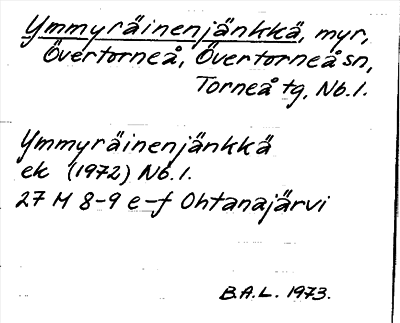 Ymmyräinenjänkkä, myr,
Övertorneå, Övertorneå sn,
Torneå tg, Nb.l.
Ymmyräinenjänkkä
ek (1972) Nb.l.
27 M 8-9 e-f Ohtanajärvi
B.A.L. 1973.